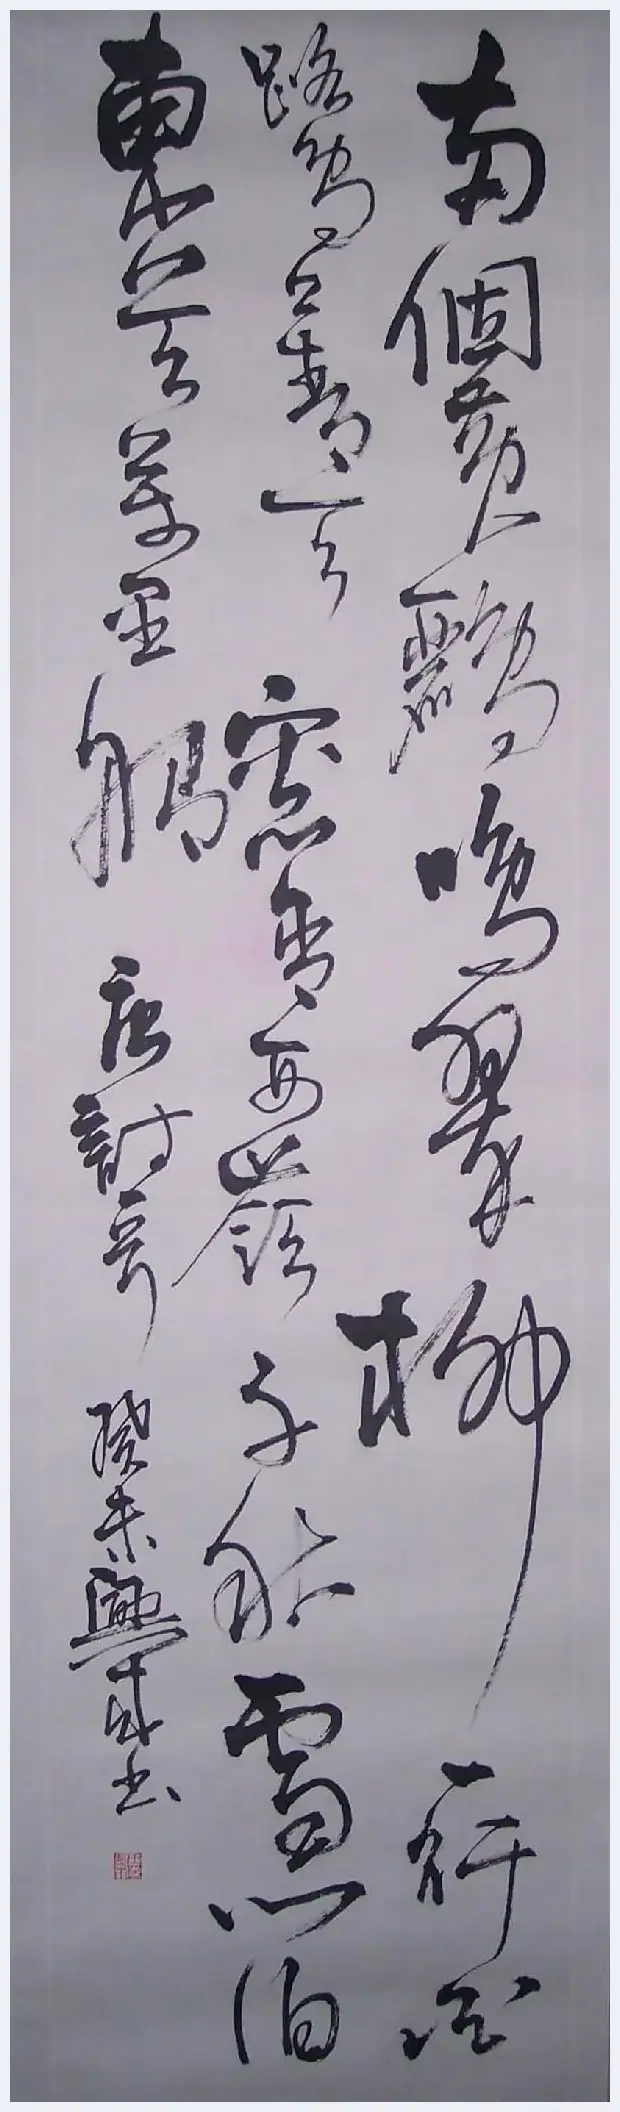 兩個黃鸝鳴翠柳一行白
鷺上青天窗含西嶺千秋雪門泊
東吳萬里船 唐詩 癸未興成书